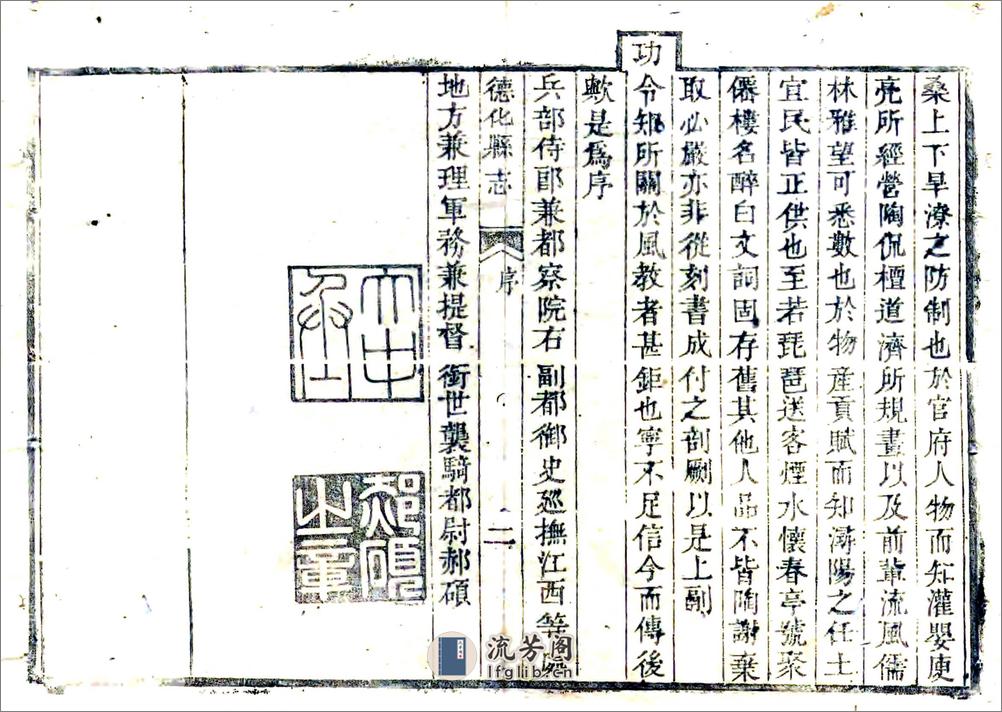 桑上下旱潦之防制也於官府人物而知灌嬰庾
亮所經營陶侃檀道濟所規畫以及前軰流風儒
林雅望可悉數也於物産貢賦而知潯陽之任土
宜民皆正供也至若琵琶送客煙水懷春亭號衆
僊樓名醉白文詞固存舊其他人品不皆陶謝棄
取必嚴亦非從刻書成付之剖劂以是上副
功令知所關於風教者甚鉅也寧不足信今而傳後
歟是爲序
兵部侍郎兼都察院右副都御史廵撫江西等
德化縣志 序 二
地方兼理軍務兼提督銜世襲騎都尉郝碩
郝碩之章
流芳阁
lfglib.cn